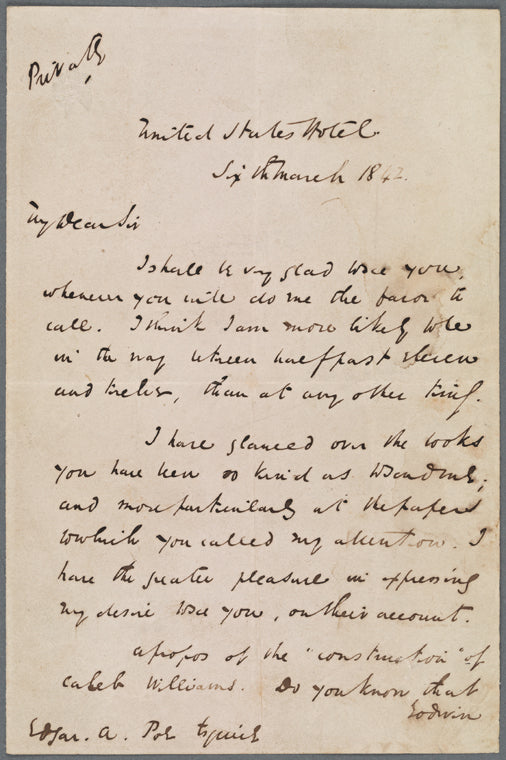 Private
United States Hotel.
Sixth March 1842.
My Dear Sir
I shall be very glad to see you,
whenever you will do me the favor to
call. I think I am more likely to be
in the way between half past eleven
and twelve, than at any other time.
I have glanced over the books
you have been so kind as to send me;
and more particularly at the papers
to which you called my attention. I
have the greater pleasure in expressing
my desire to see you, on their account.
Apropos of the "construction" of
Caleb Williams. Do you know that
Godwin
Edgar. A. Poe Esquire